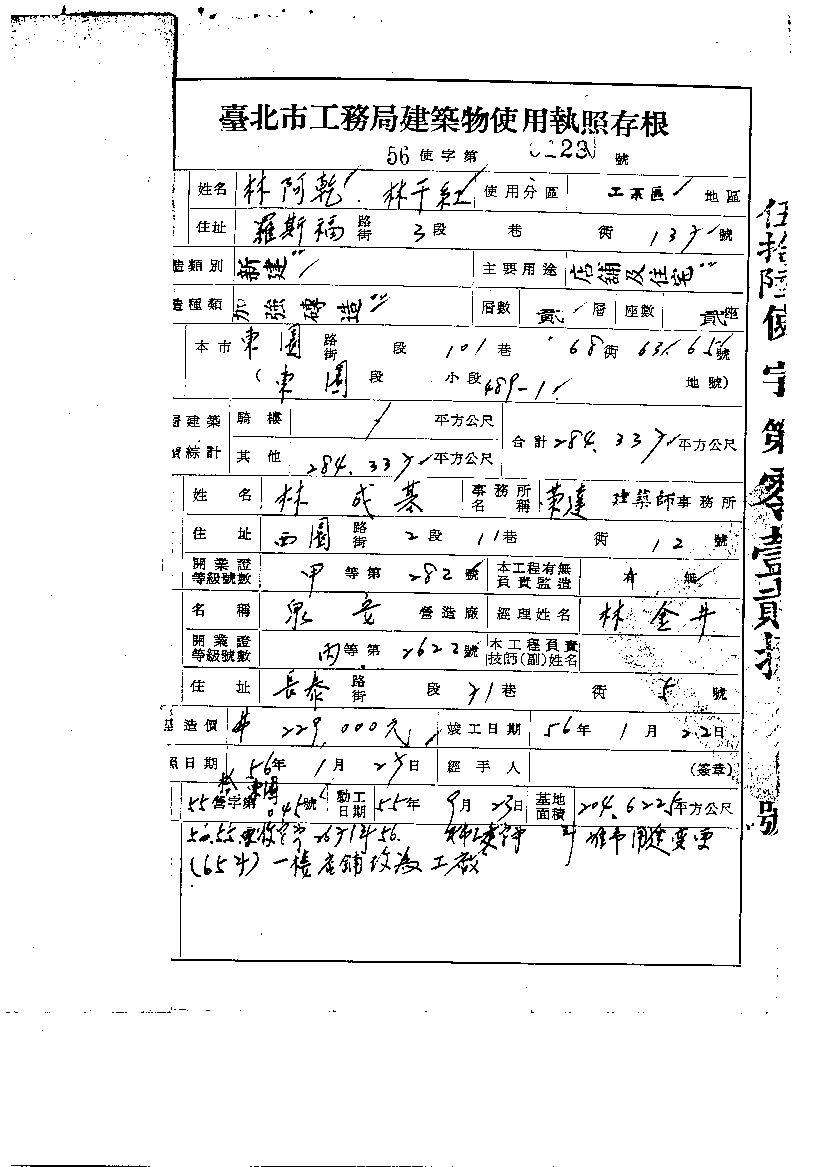 臺北市工務局建築物使用執照存根
56 使字第 號
姓名 林阿乾 林千紅 使用分區 工業區 地區
住址 羅斯福 路街 3 段 巷 街 137 號
造類別 新建 主要用途 店舖及住宅
造種類 加強磚造 層數 貳 層 座數 貳 座
本市 東園 路街 段 101 巷 68 街 63.65 號
( 東園 段 小段 489-1 地號)
層建築 騎樓 平方公尺 合計 284.337 平方公尺
積綜計 其他 284.337 平方公尺
姓名 林成基 事務所名稱 榮達 建築師事務所
住址 西園 路街 2 段 11 巷 街 12 號
開業證等級號數 甲 等第 282 號 本工程有無負責監造 有 無
名稱 泉 營造廠 經理姓名 林金井
開業證等級號數 丙 等第 2622 號 本工程負責技師(副)姓名
住址 長泰 路街 段 71 巷 街 5 號
造價 229,000元 竣工日期 56 年 1 月 22 日
照日期 56 年 1 月 27 日 經手人 (簽章)
55 營字第 045 號 動工日期 55 年 9 月 23 日 基地面積 204.6225 平方公尺
用途變更
(65年) 一樓店舖改為工廠
伍拾陸使字第零壹貳 號